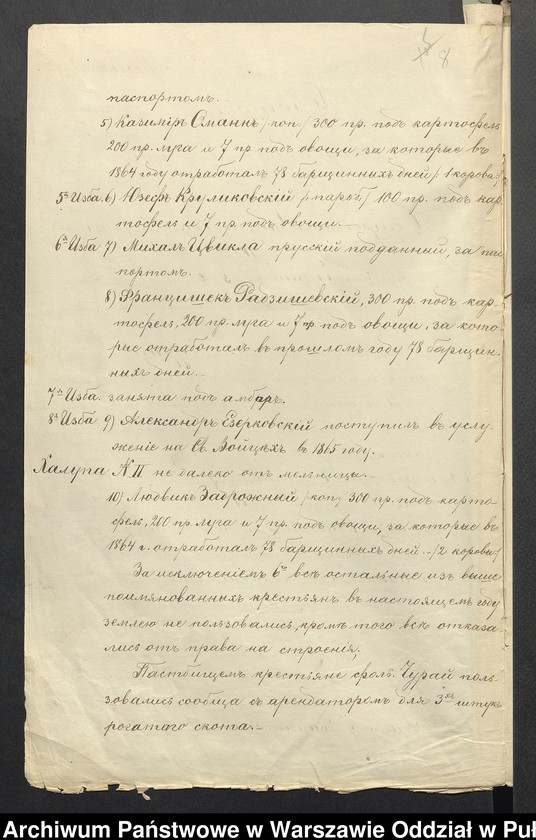 8
паспортомъ.
5) Казимiръ Сманнъ /коп/ 300 пр. подъ картофель
200 пр. луга и 7 пр подъ овощи, за которые въ
1864 году отработалъ 78 барщинныхъ дней /1 корова/
5я Изба. 6) Юзефъ Круликовскiй /пароб/ 100 пр. подъ кар
тофель и 7 пр. подъ овощи. —
6я Изба 7) Михалъ Цвикла прусскiй подданный, за пас
портомъ.
8) Францишекъ Радзишевскiй, 300 пр. подъ кар-
тофель, 200 пр. луга и 7 пр. подъ овощи, за кото-
рые отработалъ въ прошломъ году 78 барщин-
ныхъ дней. —
7я Изба. занята подъ амбаръ.
8я Изба 9) Александръ Езерковскiй поступилъ въ услу-
женiе на Св. Войцехъ въ 1865 году.
Халупа № II не далеко отъ мельницы. —
10) Людвикъ Задрожный /коп/ 300 пр. подъ карто-
фель, 200 пр. луга и 7 пр. подъ овощи, за которые въ
1864 г. отработалъ 78 барщинныхъ дней. — /2 коровы/
За исключенiемъ 6го всѣ остальные изъ выше
поимянованныхъ крестьянъ въ настоящемъ году
землею не пользовались, кромѣ того всѣ отказа-
лись отъ права на строенiя;
Пастбищемъ крестьяне фольв. Чурай поль-
зовались сообща съ арендаторомъ для 3хъ штукъ
рогатаго скота. —
Archiwum Państwowe w Warszawie Oddział w Puł